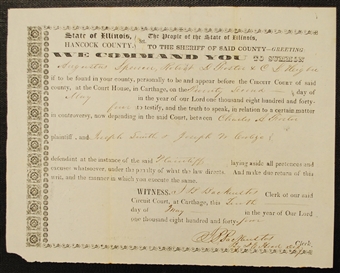 State of Illinois,
HANCOCK COUNTY.
The People of the State of Illinois,
TO THE SHERIFF OF SAID COUNTY—GREETING
WE COMMAND YOU TO SUMMON
Augustine Spencer,
if to be found in your county, personally to be and appear before the CIRCUIT COURT of said
county, at the Court House, in Carthage, on the day of
May in the year of our Lord one thousand eight hundred and forty-
four to testify, and the truth to speak, in relation to a certain matter
in controversy, now depending in the said Court, between Charles A. Foster
plaintiff, and Joseph Smith &
defendant at the instance of the said Plaintiff laying aside all pretences and
excuses whatsoever, under the penalty of what the law directs. And make due return of this
writ, and the manner in which you execute the same.
WITNESS, J B Backenstos Clerk of our said
Circuit Court, at Carthage, this Tenth
day of May in the year of Our Lord
one thousand eight hundred and forty-four
J B Backenstos Clerk,